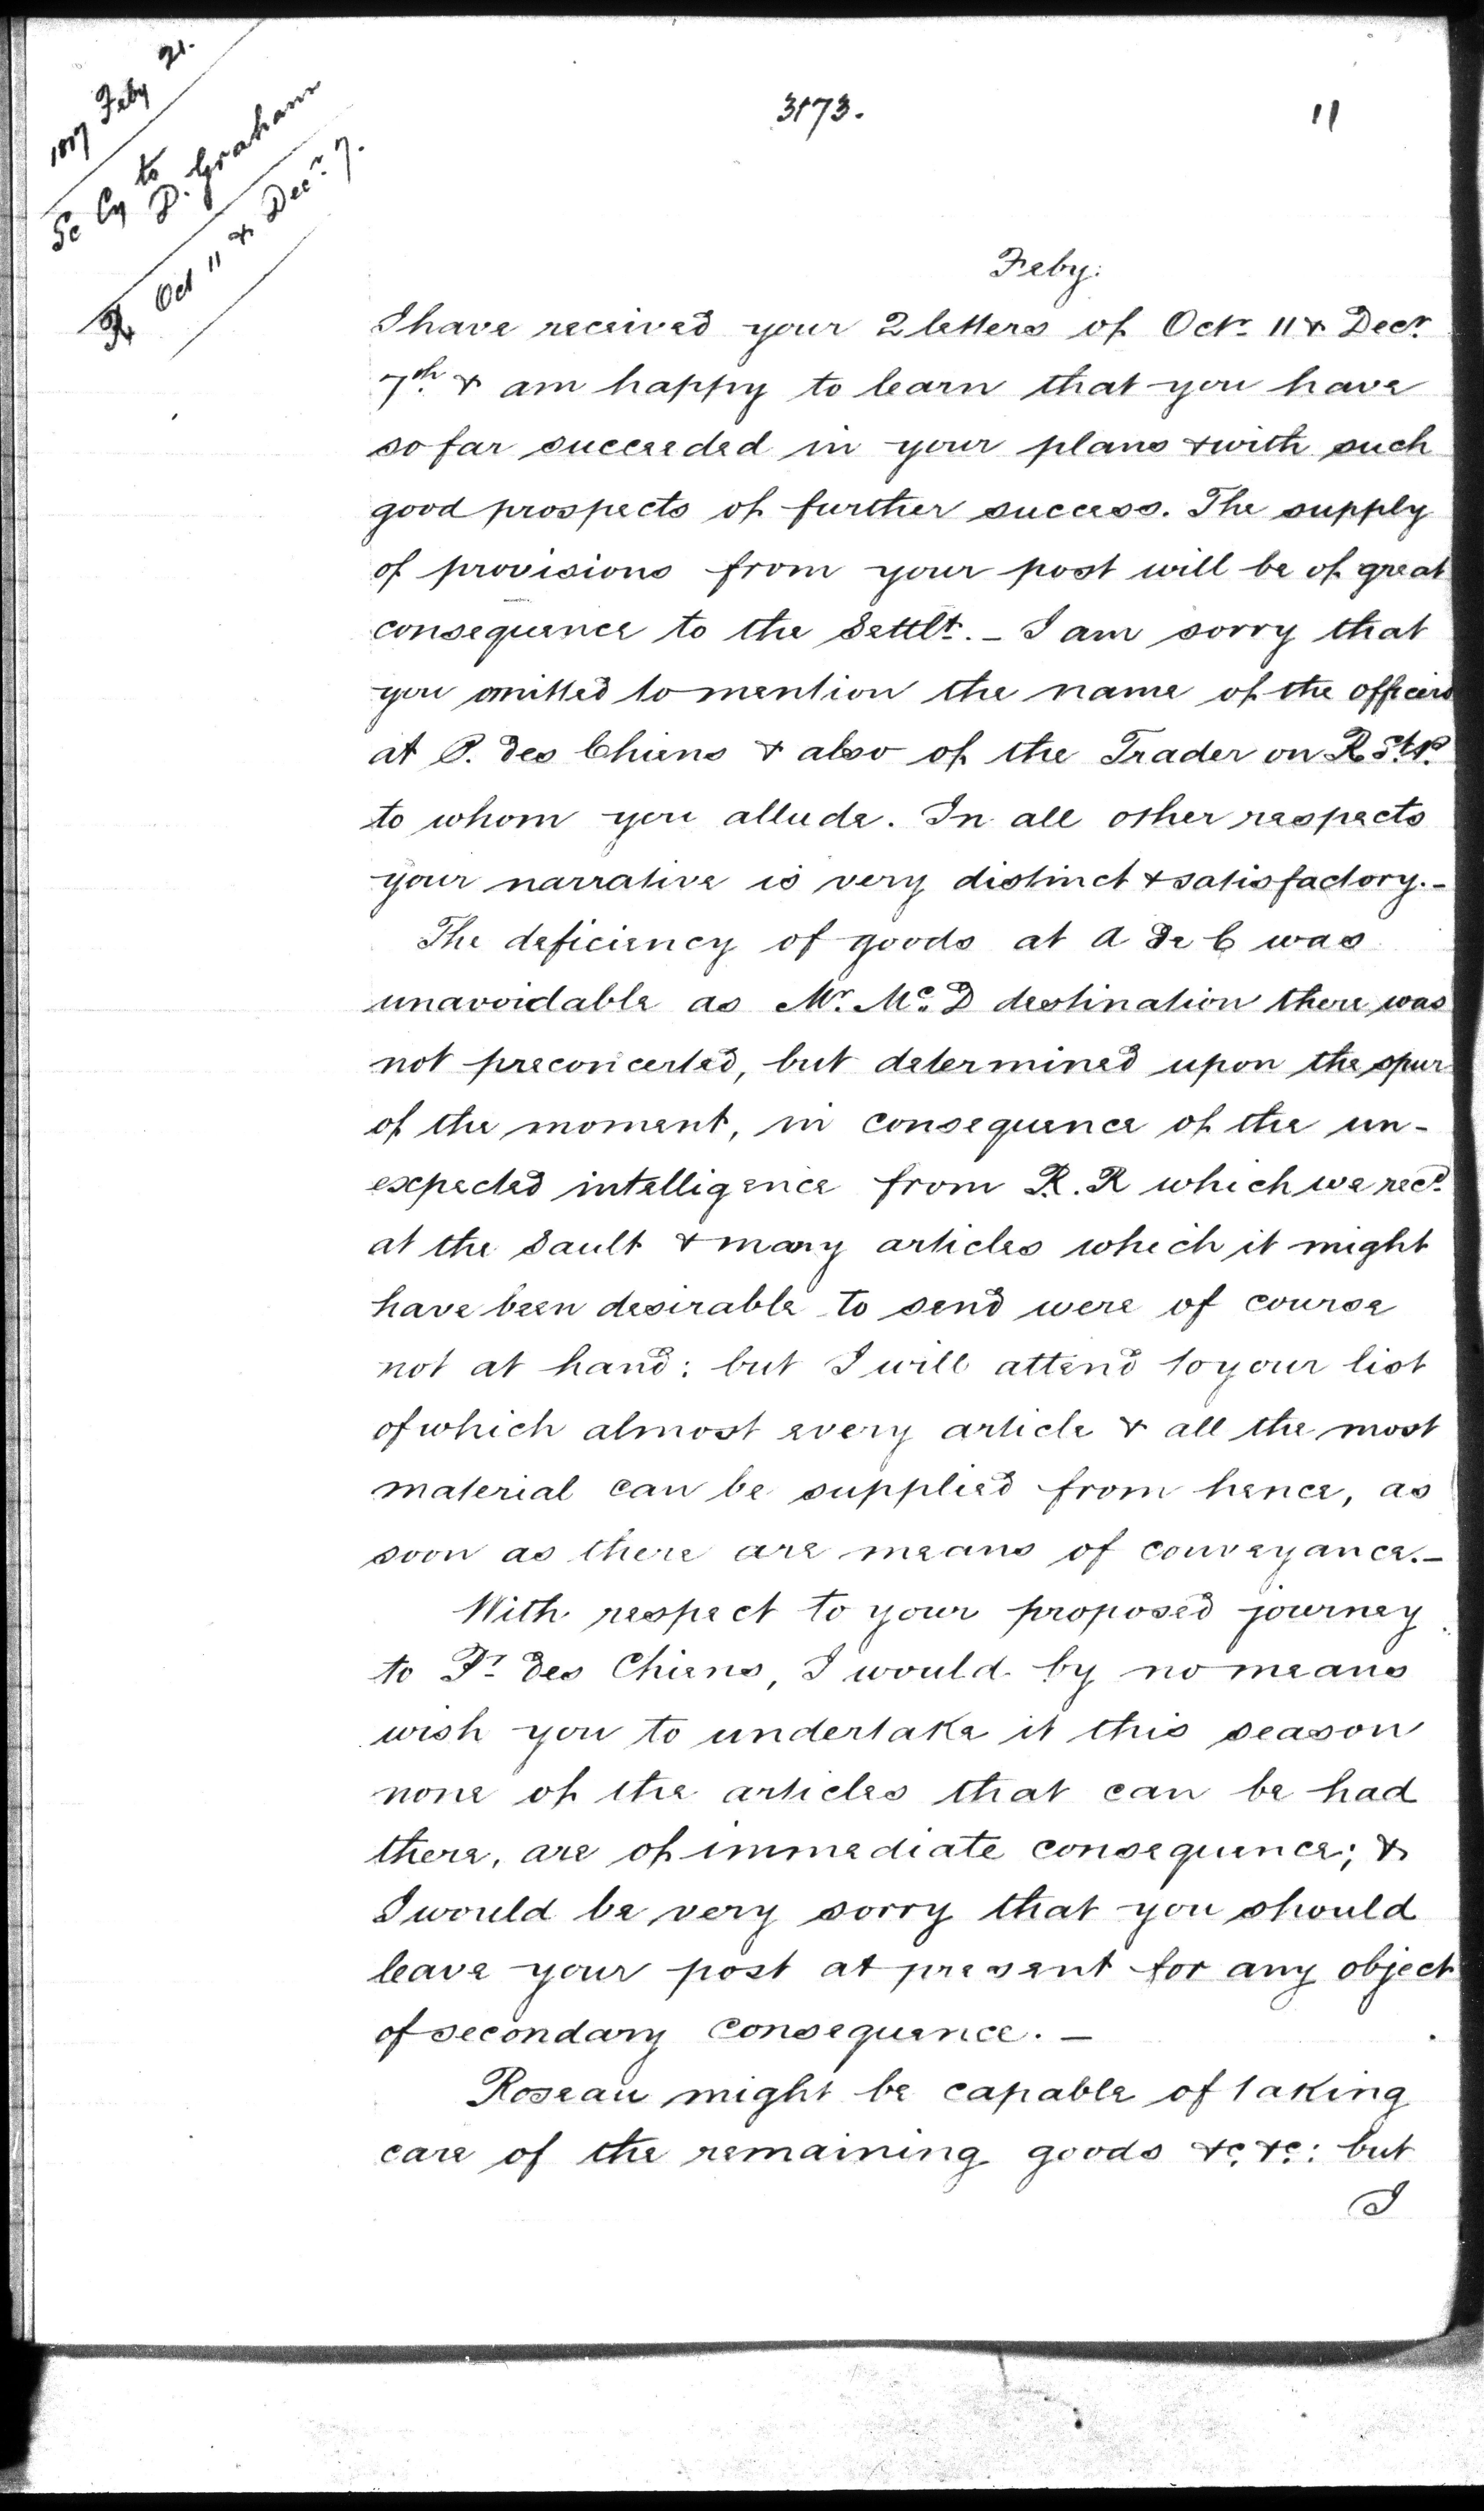 1817 Feby 21.
Sc Cy to
D. Graham
R Oct 11 & Decr 7.
3173.
11
Feby:
I have received your 2 letters of Octr 11 & Decr
7th & am happy to learn that you have
so far succeeded in your plans & with such
good prospects of further success. The supply
of provisions from your post will be of great
consequence to the Settlt. – I am sorry that
you omitted to mention the name of the officers
at P. des Chiens & also of the Trader on R St P.
to whom you allude. In all other respects
your narrative is very distinct & satisfactory. –
The deficiency of goods at A de C was
unavoidable as Mr. Mc. D destination there was
not preconcerted, but determined upon the spur
of the moment, in consequence of the un-
expected intelligence from R. R which we recd.
at the Sault & many articles which it might
have been desirable to send were of course
not at hand: but I will attend to your list
of which almost every article & all the most
material can be supplied from hence, as
soon as there are means of conveyance. –
With respect to your proposed journey
to Pr des Chiens, I would by no means
wish you to undertake it this season
none of the articles that can be had
there, are of immediate consequence; &
I would be very sorry that you should
leave your post at present for any object
of secondary consequence. –
Roseau might be capable of taking
care of the remaining goods &c. &c.: but
I